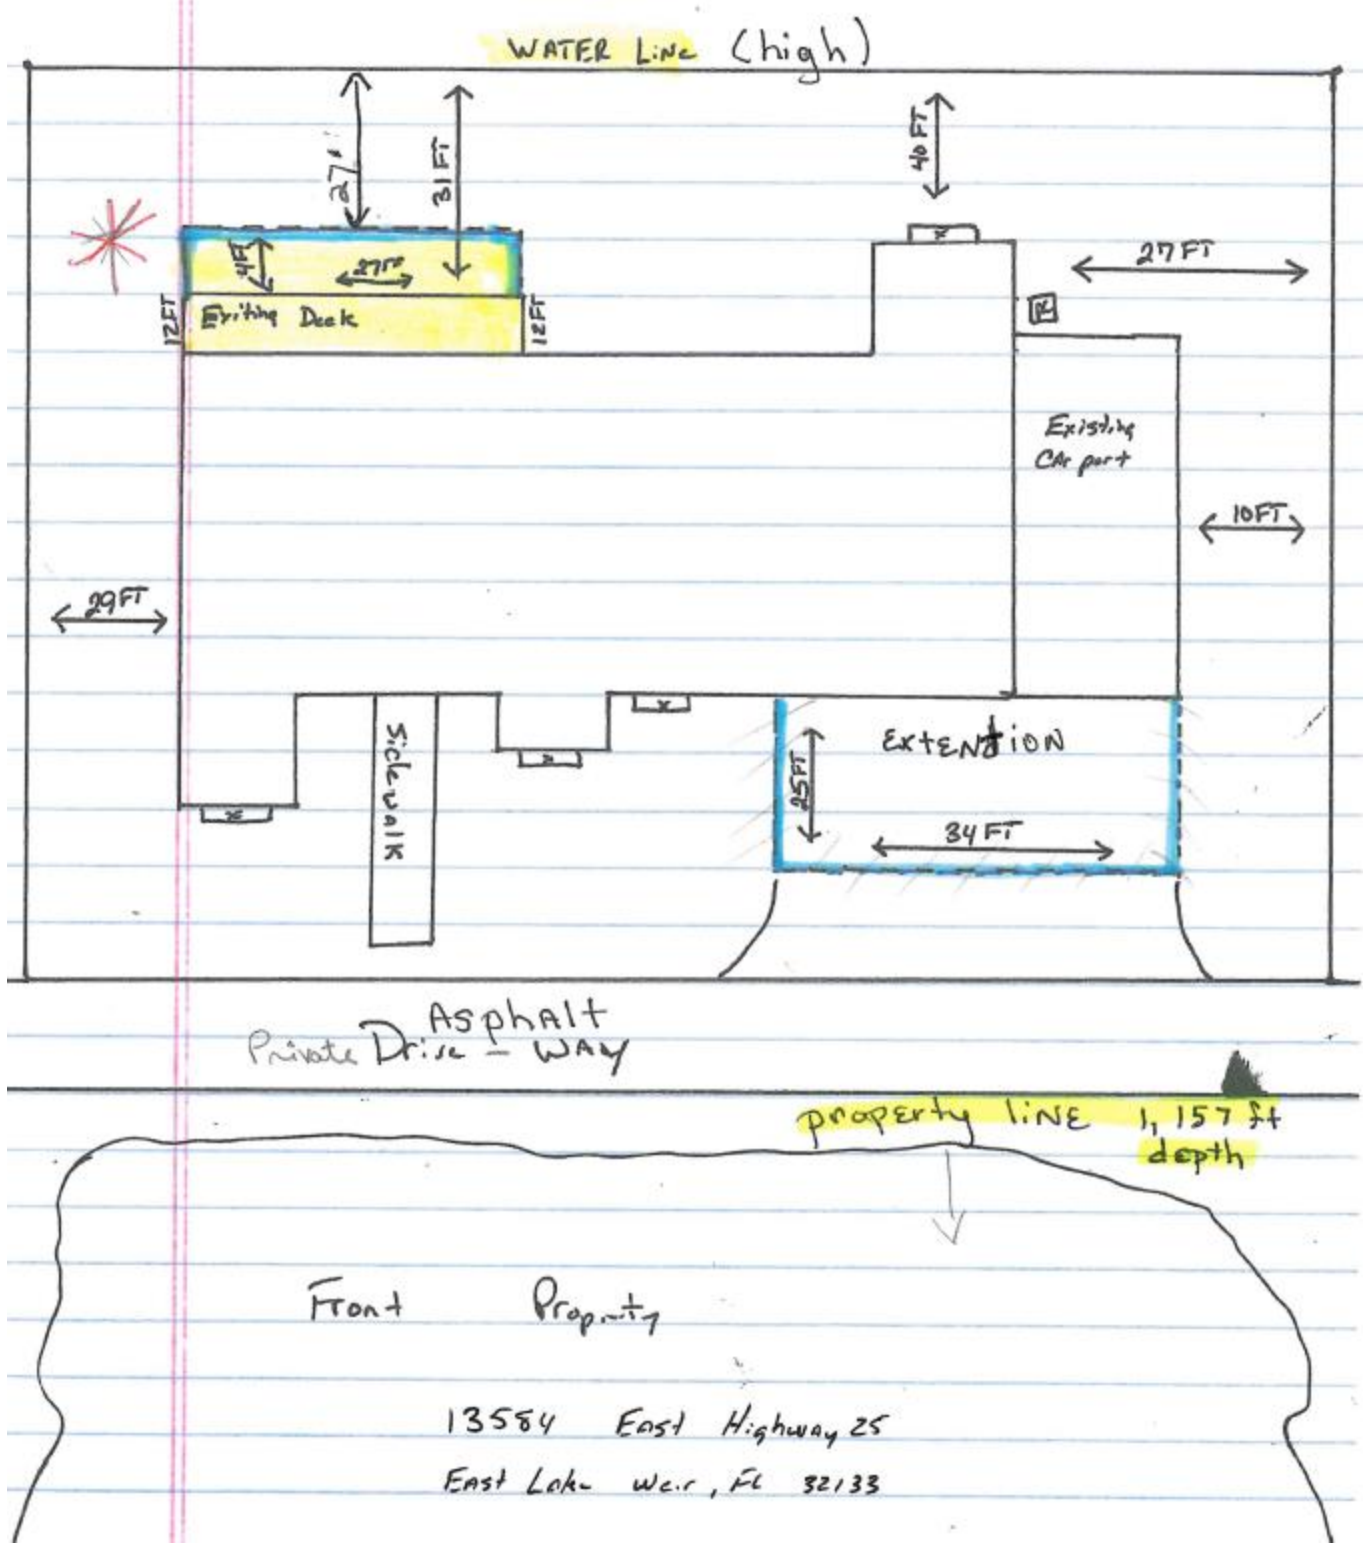 WATER LiNe (high)
27"
31 FT
40 FT
27 FT
4FT
27FT
12FT
Exiting Deck
12FT
R
Existing
CAr port
10FT
29 FT
Sidewalk
x
x
x
x
ExtENtiON
25FT
34 FT
Asphalt
Private Drive - WAY
property liNE 1,157 ft
depth
Front Property
13584 East Highway 25
EAst Lake Weir, FL 32133